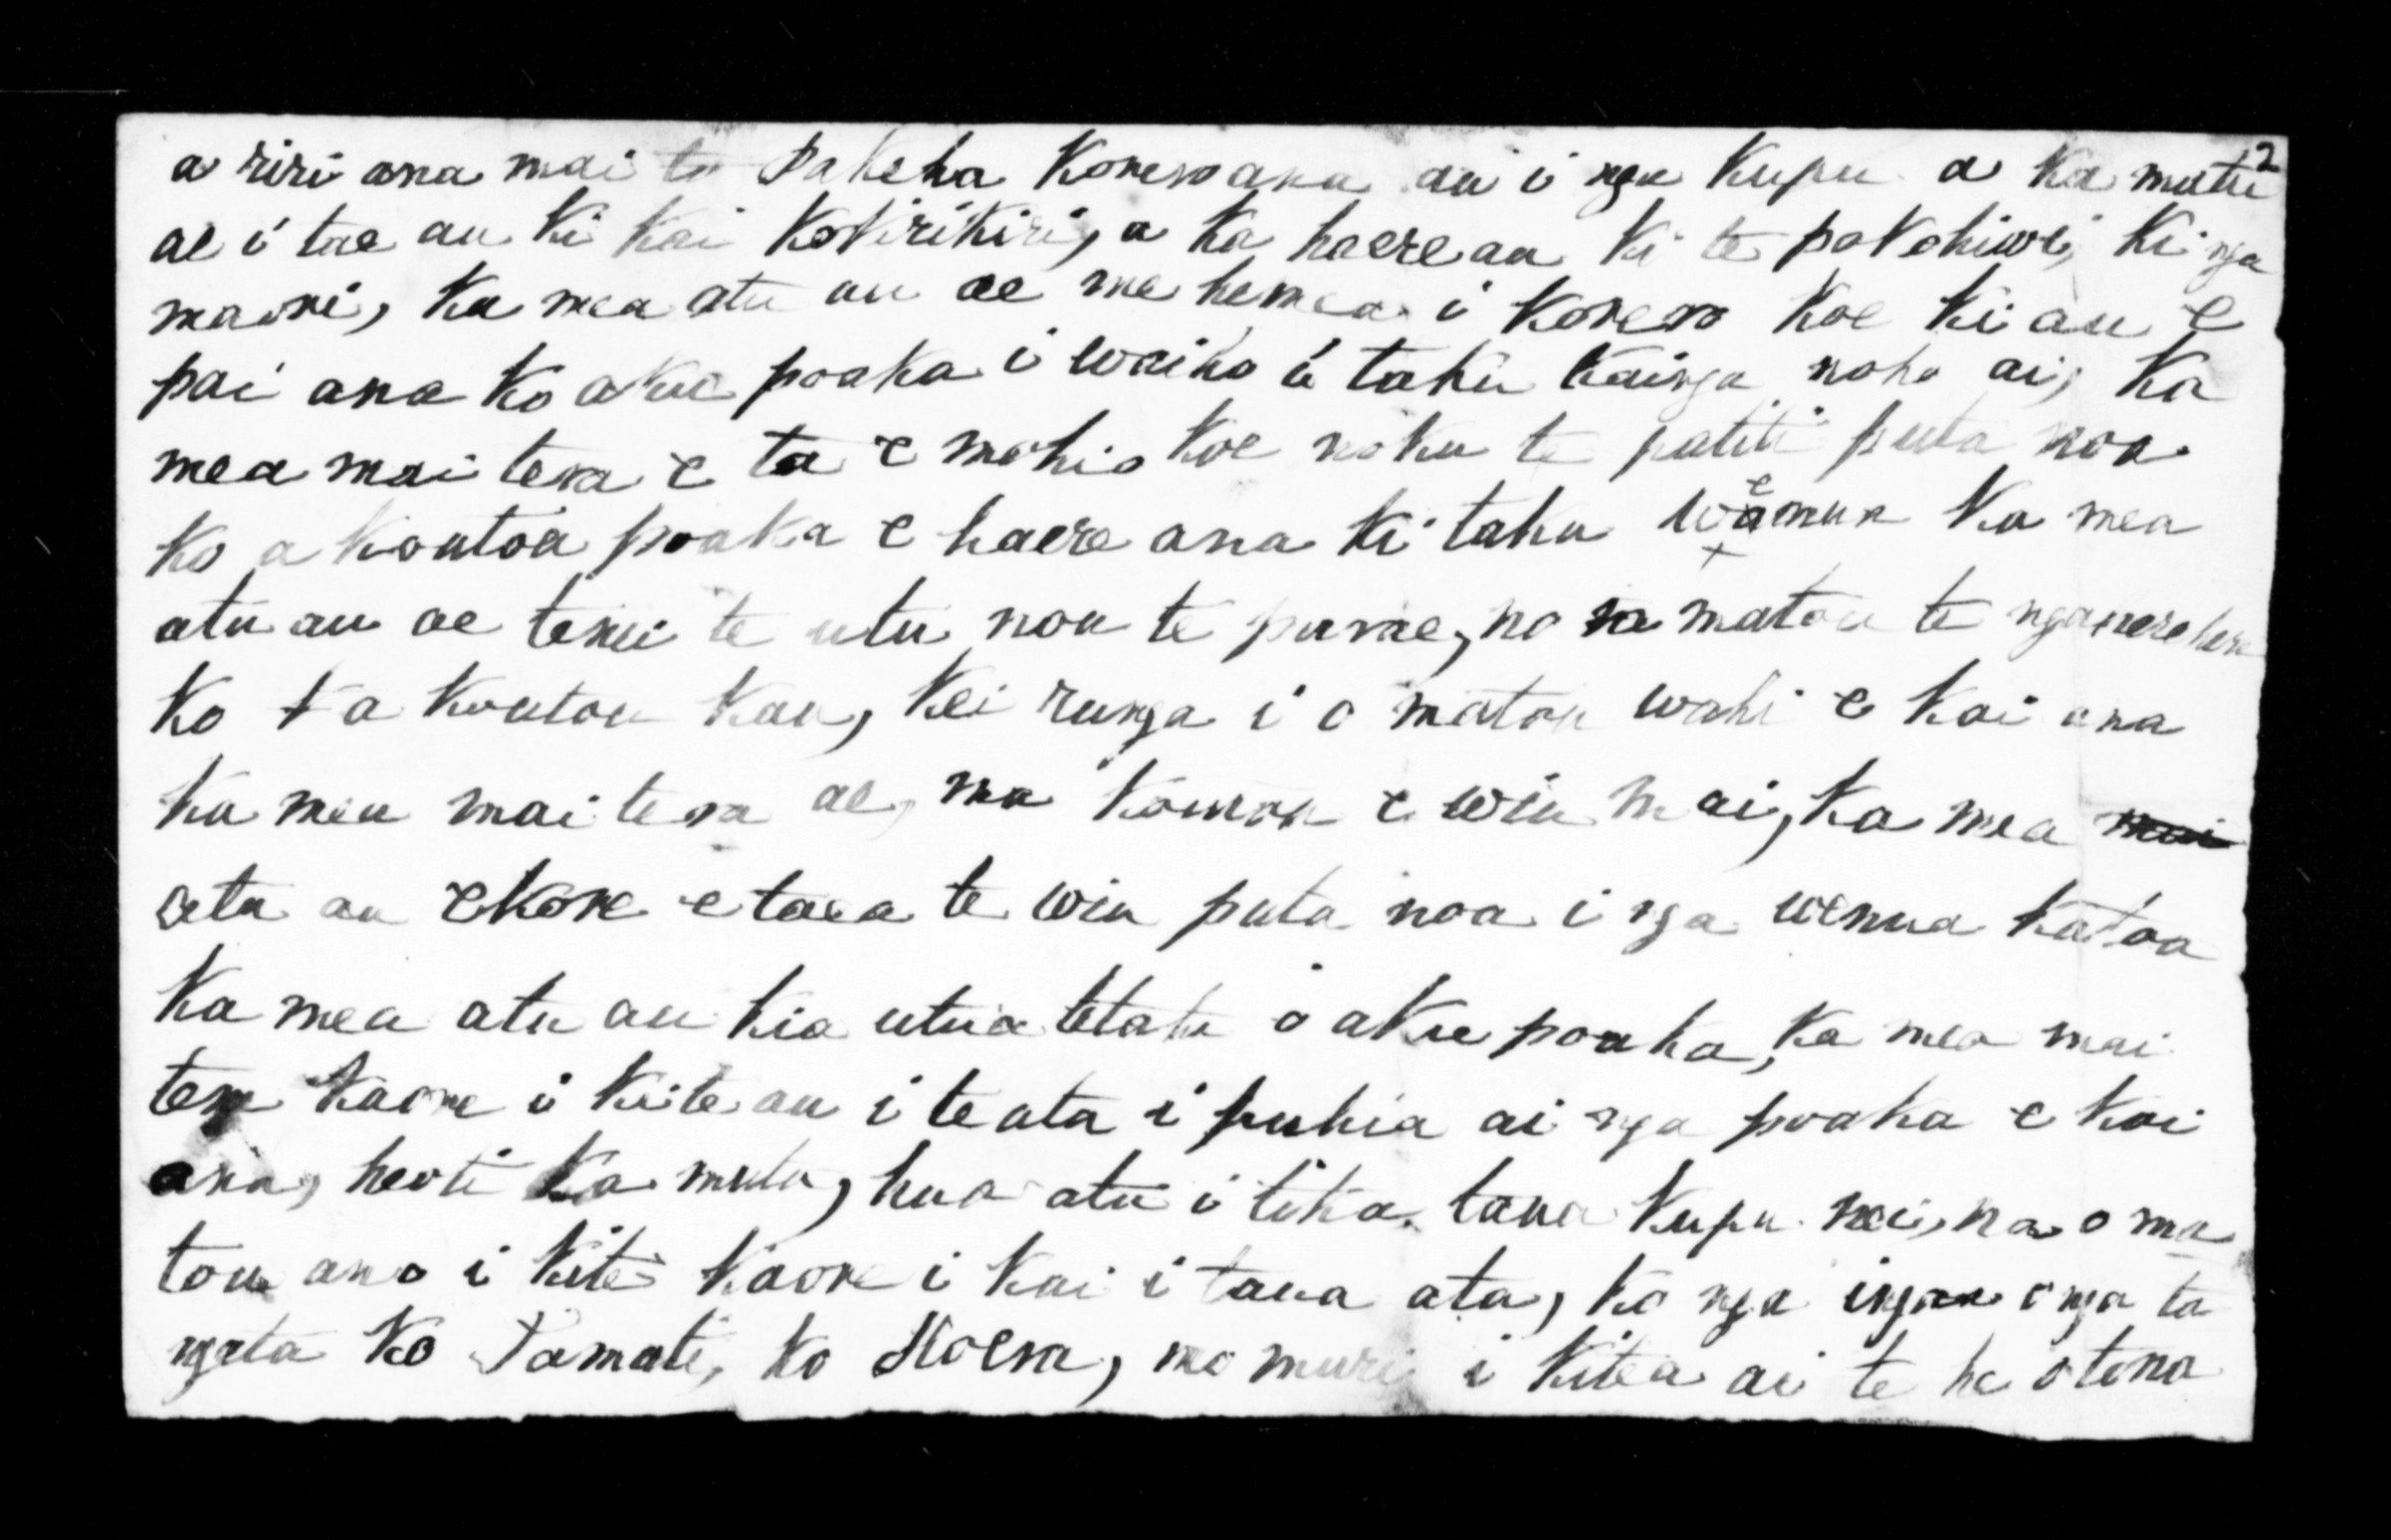 2
a riri ana mai te Pakeha Korero ana au i nga Kupu a Ka mutu
ae i tae au Ki Kai Kokirikiri, a Ka haere au Ki te pokohiwi, Ki nga
maori, Ka mea atu au ae me hemea i Korero Koe Ki au e
pai ana Ko aku poaka i waiho i taku Kainga noho ai, Ka
mea mai tera e ta e mohio Koe noku te patiti puta noa
Ko a Koutou poaka e haere ana Ki taku wenua Ka mea
atu au ae tenei te utu nou te purae, no matou te ngaherehere
Ko t a Koutou Kau, Kei runga i o matou wahi e Kai ana
Ka mea mai tera ae, ma Koutou e wiu mai, Ka mea mai
atu au eKore e taea te wiu puta noa i nga wenua Katoa
Ka mea atu au Kia utua tetahi o aku poaka, Ka mea mai
tera Kaore i Kite au i te ata i puhia ai nga poaka e Kai
ana, heoti Ka mutu, hua atu i tika taua Kupu nei, na o ma
tou ano i Kite Kaore i Kai i taua ata, Ko nga ingoa o nga ta
ngata Ko Tamati, Ko Hoera, no muri i Kitea ai te he o tona